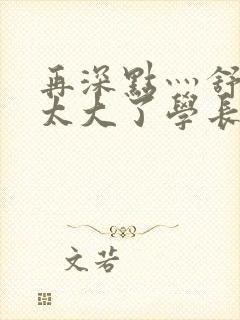 再深點灬舒
太大了學長
文若